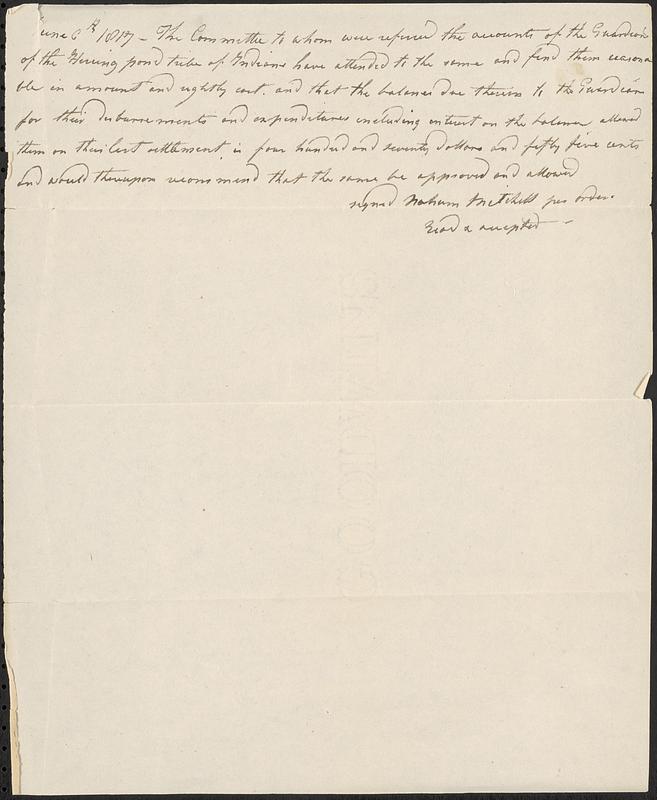 June 6th 1817 - The Committee to whom were refered the accounts of the Guardians
of the Herring pond tribe of Indians have attended to the same and find them reasona
ble in amount and rightly cast. and that the balance due therein to the Guardians
for their disbursements and expenditures including interest on the balance allowed
them on their last settlement is four hundred and seventy dollars and fifty five cents
and would thereupon recommend that the same be approved and allowed
signed Nahum Mitchell per order.
Read & accepted -